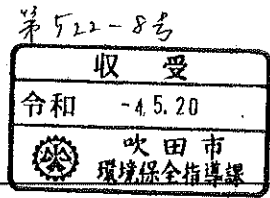 第522-8号
収受
令和 -4.5.20
吹田市
環境保全指導課